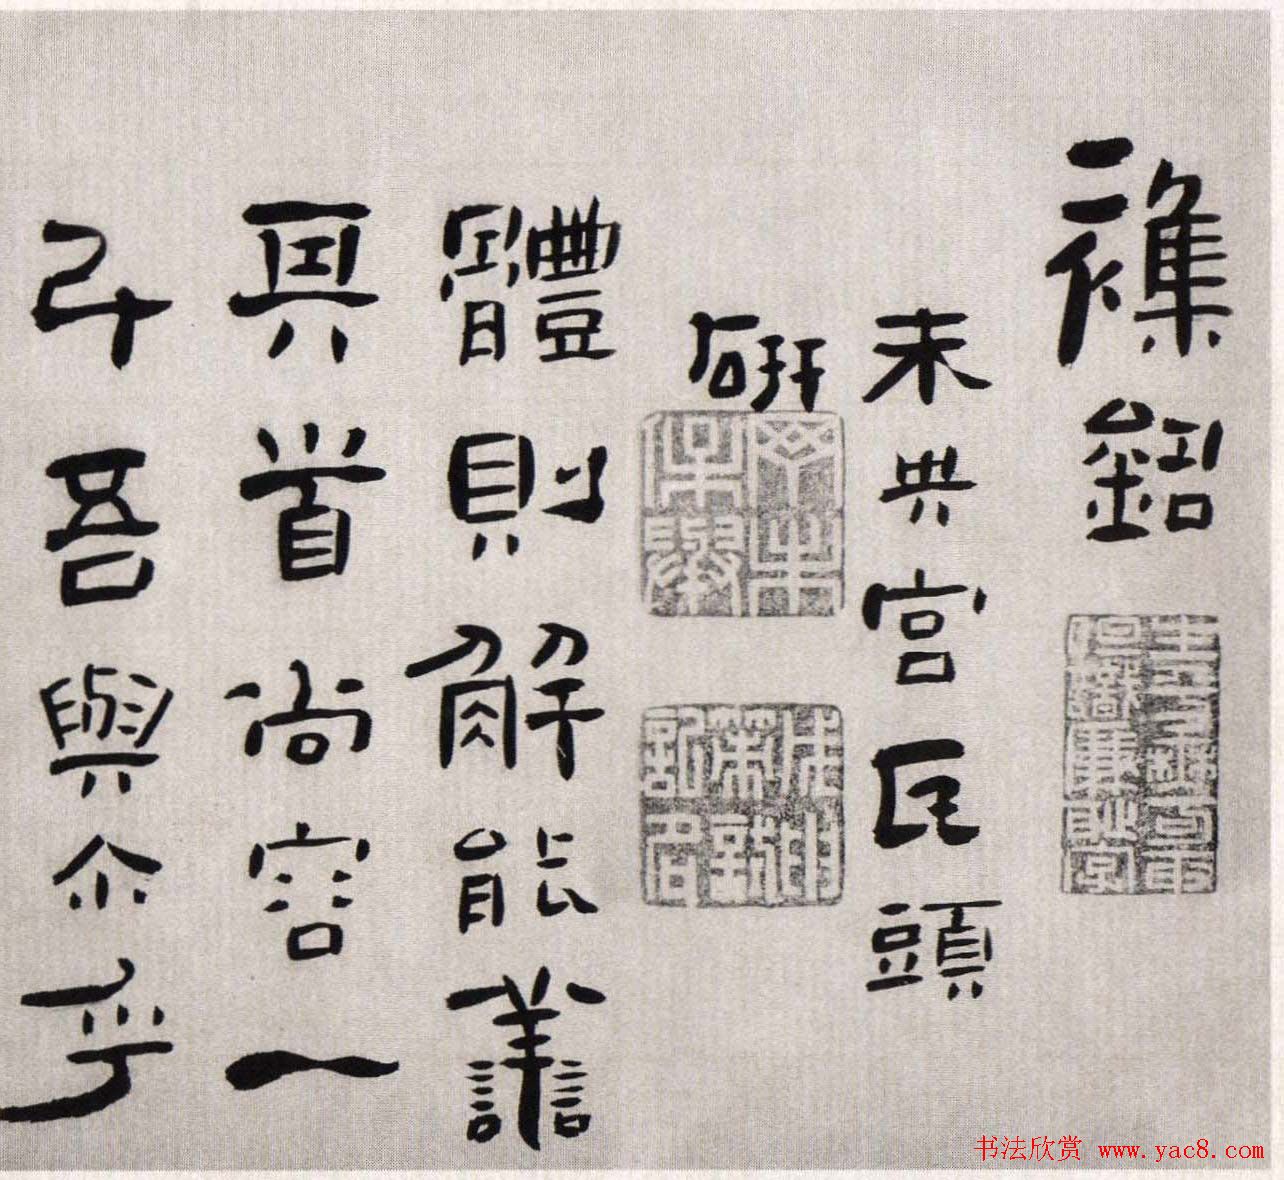 襍銘
未央宮瓦頭
研
體則解能譱
真首尚容一
斗吾與尒乎
书法欣赏 www.yac8.com